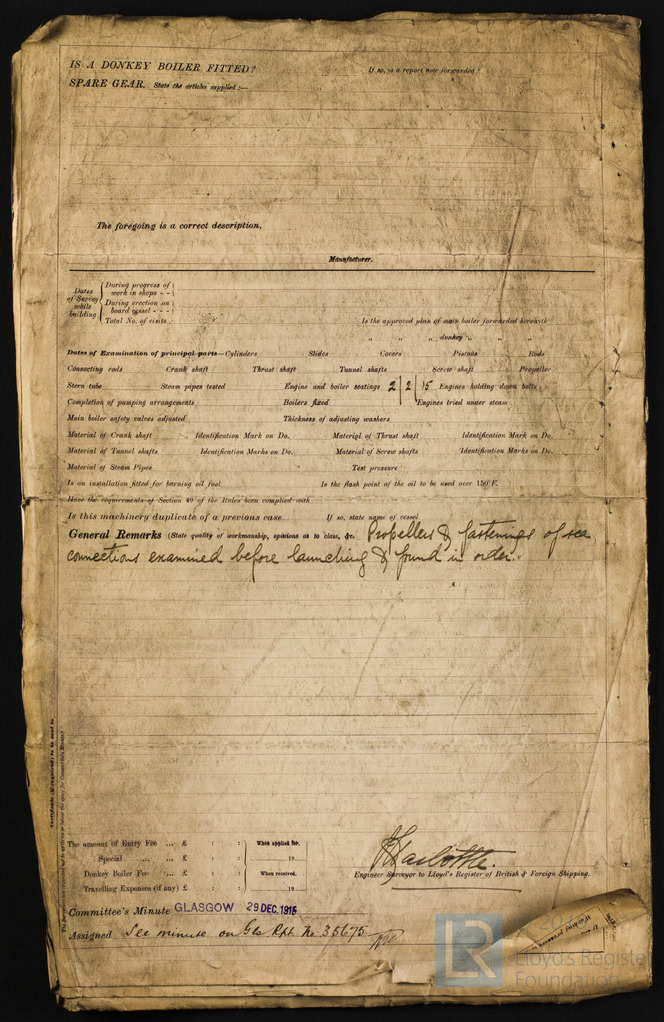 IS A DONKEY BOILER FITTED? If so, is a report now forwarded?
SPARE GEAR. State the articles supplied:—
The foregoing is a correct description,
Manufacturer.
Dates of Survey while building
During progress of work in shops - -
During erection on board vessel - - -
Total No. of visits
Is the approved plan of main boiler forwarded herewith
" " donkey " " "
Dates of Examination of principal parts—Cylinders Slides Covers Pistons Rods
Connecting rods Crank shaft Thrust shaft Tunnel shafts Screw shaft Propeller
Stern tube Steam pipes tested Engine and boiler seatings 2/2/15 Engines holding down bolts
Completion of pumping arrangements Boilers fixed Engines tried under steam
Main boiler safety valves adjusted Thickness of adjusting washers
Material of Crank shaft Identification Mark on Do. Material of Thrust shaft Identification Mark on Do.
Material of Tunnel shafts Identification Marks on Do. Material of Screw shafts Identification Marks on Do.
Material of Steam Pipes Test pressure
Is an installation fitted for burning oil fuel Is the flash point of the oil to be used over 150°F.
Have the requirements of Section 49 of the Rules been complied with
Is this machinery duplicate of a previous case If so, state name of vessel
General Remarks (State quality of workmanship, opinions as to class, &c. Propellers & fastenings of sea
connections examined before launching & found in order.
Certificate (if required) to be sent to
The amount of Entry Fee ... £ : : When applied for,
Special ... ... £ : : 19
Donkey Boiler Fee ... £ : : When received,
Travelling Expenses (if any) £ : : 19
Engineer Surveyor to Lloyd's Register of British & Foreign Shipping.
Committee's Minute GLASGOW 29 DEC. 1915
Assigned See minute on Gls Rpt. No 35675
LR
Lloyd's Register
Foundation